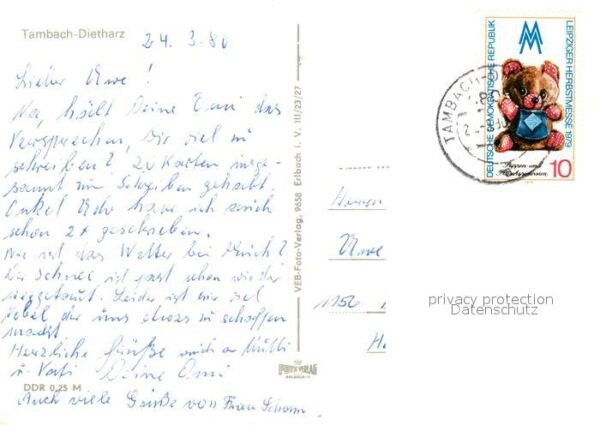 Tambach-Dietharz
24. 3. 80
Lieber Uwe!
Na, hält Deine Omi das
Versprechen, Dir viel zu
schreiben? 20 Karten insge-
samt zum Schreiben gehabt.
Onkel habe ich auch
schon 2x geschrieben.
Wie ist das Wetter bei Euch?
Der Schnee ist fast schon wieder
weggetaut. Leider ist hier viel
Nebel der uns etwas zu schaffen
macht
Herzliche Grüße auch an Mutti
u. Vati Deine Omi
DDR 0,25 M
Auch viele Grüße von Frau
VEB-Foto-Verlag, 9658 Erlbach i. V. III/23/27
FOTO VERLAG
ERLBACH
DEUTSCHE DEMOKRATISCHE REPUBLIK
LEIPZIGER HERBSTMESSE 1979
Puppen und
10
TAMBACH-
Herrn
Uwe
1956
privacy protection
Datenschutz